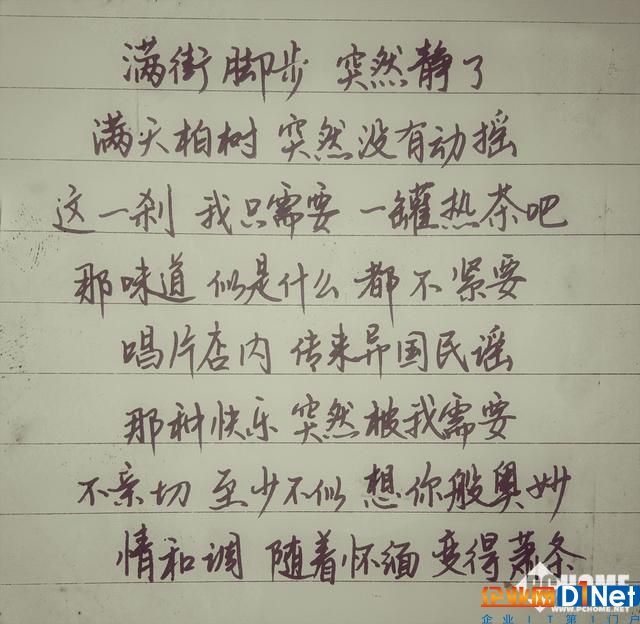 满街脚步 突然静了
满天柏树 突然没有动摇
这一刹 我只需要 一罐热茶吧
那味道 似是什么 都不紧要
唱片店内 传来异国民谣
那种快乐 突然被我需要
不亲切 至少不似 想你般奥妙
情和调 随着怀缅 变得萧条
PCHOME
WWW.PCHOME.NET
企业网D1Net
企业IT第1门户